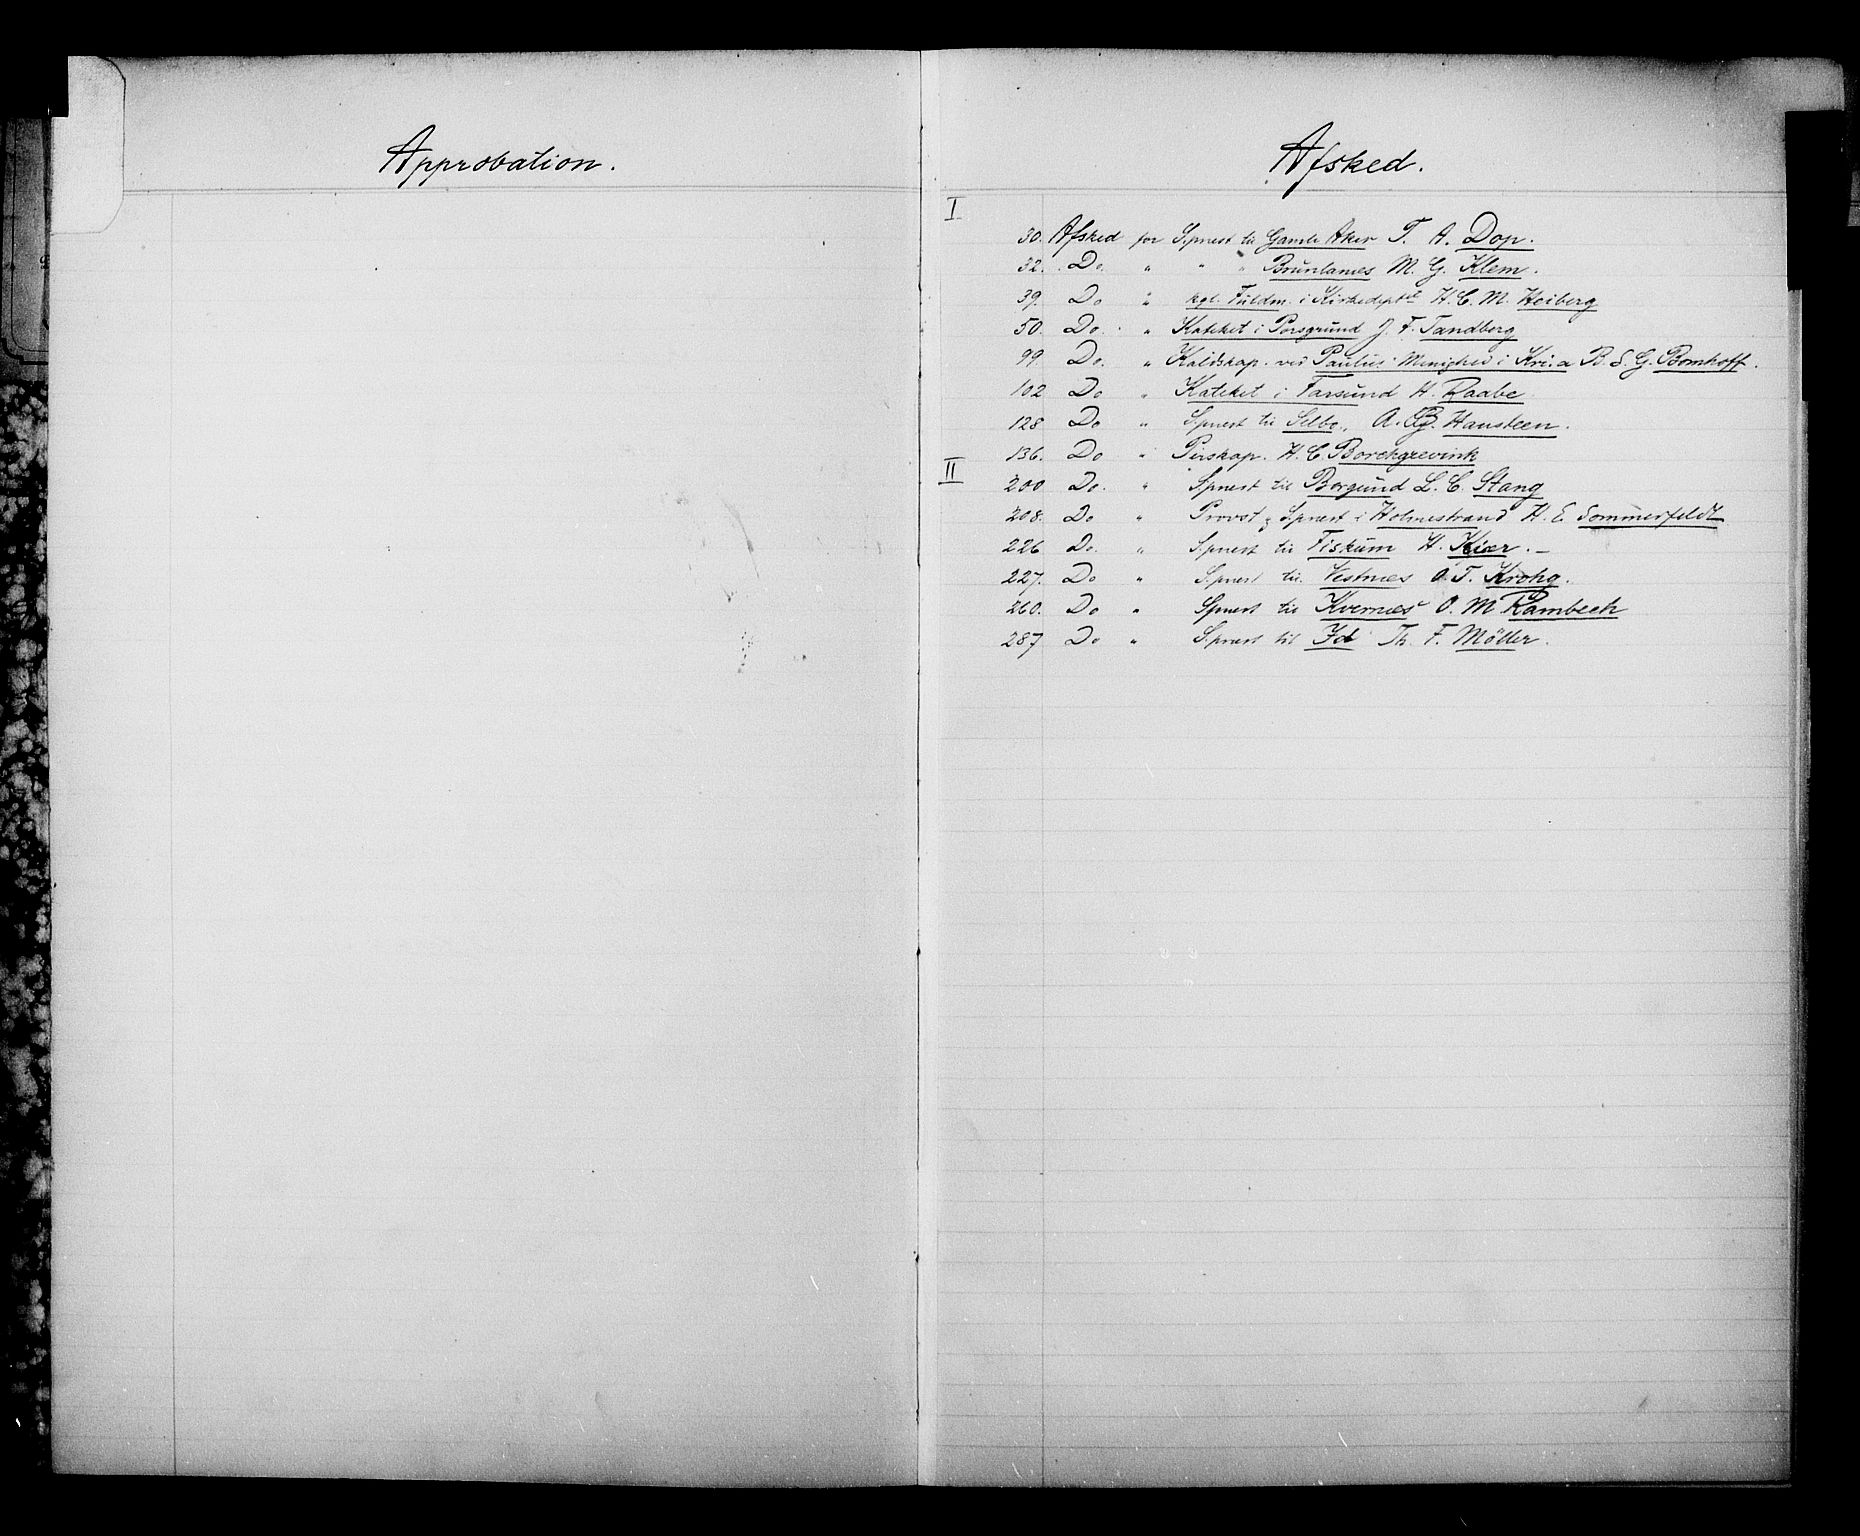 Approbation.
Afsked.
I
30. Afsked for S.prest til Gamle Aker T. A. Dop.
32. Do. " " " Brunlanes M. G. Klem.
39. Do " kgl. Fuldm. i Kirkedeptet H. C. M. Hoiberg
50. Do. " Kateket i Porsgrund J. F. Tandberg
99. Do. " Kaldskap. ved Paulus Menighed i Kri.a B. S. G. Bomhoff.
102 Do " Kateket i Farsund H. Raabe
128 Do " S.prest til Selbo, A. Hansteen.
136. Do " Perskap. H. C. Borchgrevink
II
200 Do. " Sprest til Borgund L. C. Stang
208. Do " Provst & S.prest i Holmestrand H. E. Sommerfeldt
226 Do. " S.prest til Fiskum H. Kiær. —
227. Do " S.prest til Vestnæs O. T. Krohg.
260. Do " Sprest til Kvernæs O. M Rambech
287 Do " S.prest til Id Th. F. Möller.